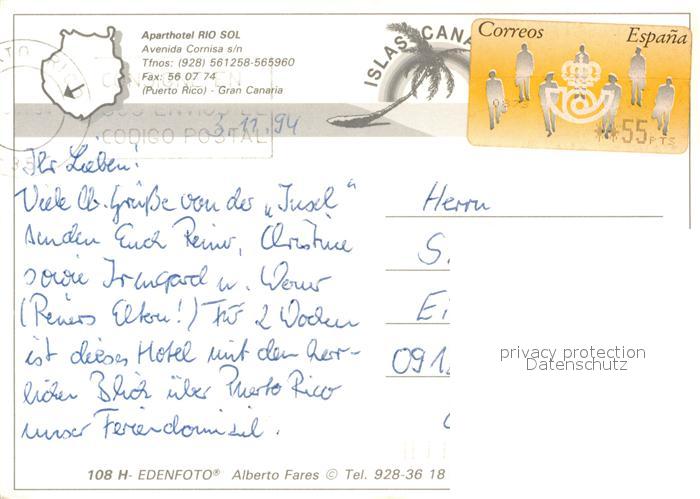 Aparthotel RIO SOL
Avenida Cornisa s/n
Tfnos: (928) 561258-565960
Fax: 56 07 74
(Puerto Rico) - Gran Canaria
ISLAS CANA
Correos España
**55 PTS
CODIGO POSTAL
3.11.94
Ihr Lieben!
Viele lb. Grüße von der „Insel“
senden Euch Reiner, Christine
sowie Irmgard u. Werner
(Reiners Eltern!) Für 2 Wochen
ist dieses Hotel mit dem herr-
lichen Blick über Puerto Rico
unser Feriendomizil.
Herrn
S.
Ei
091
privacy protection
Datenschutz
108 H- EDENFOTO® Alberto Fares © Tel. 928-36 18